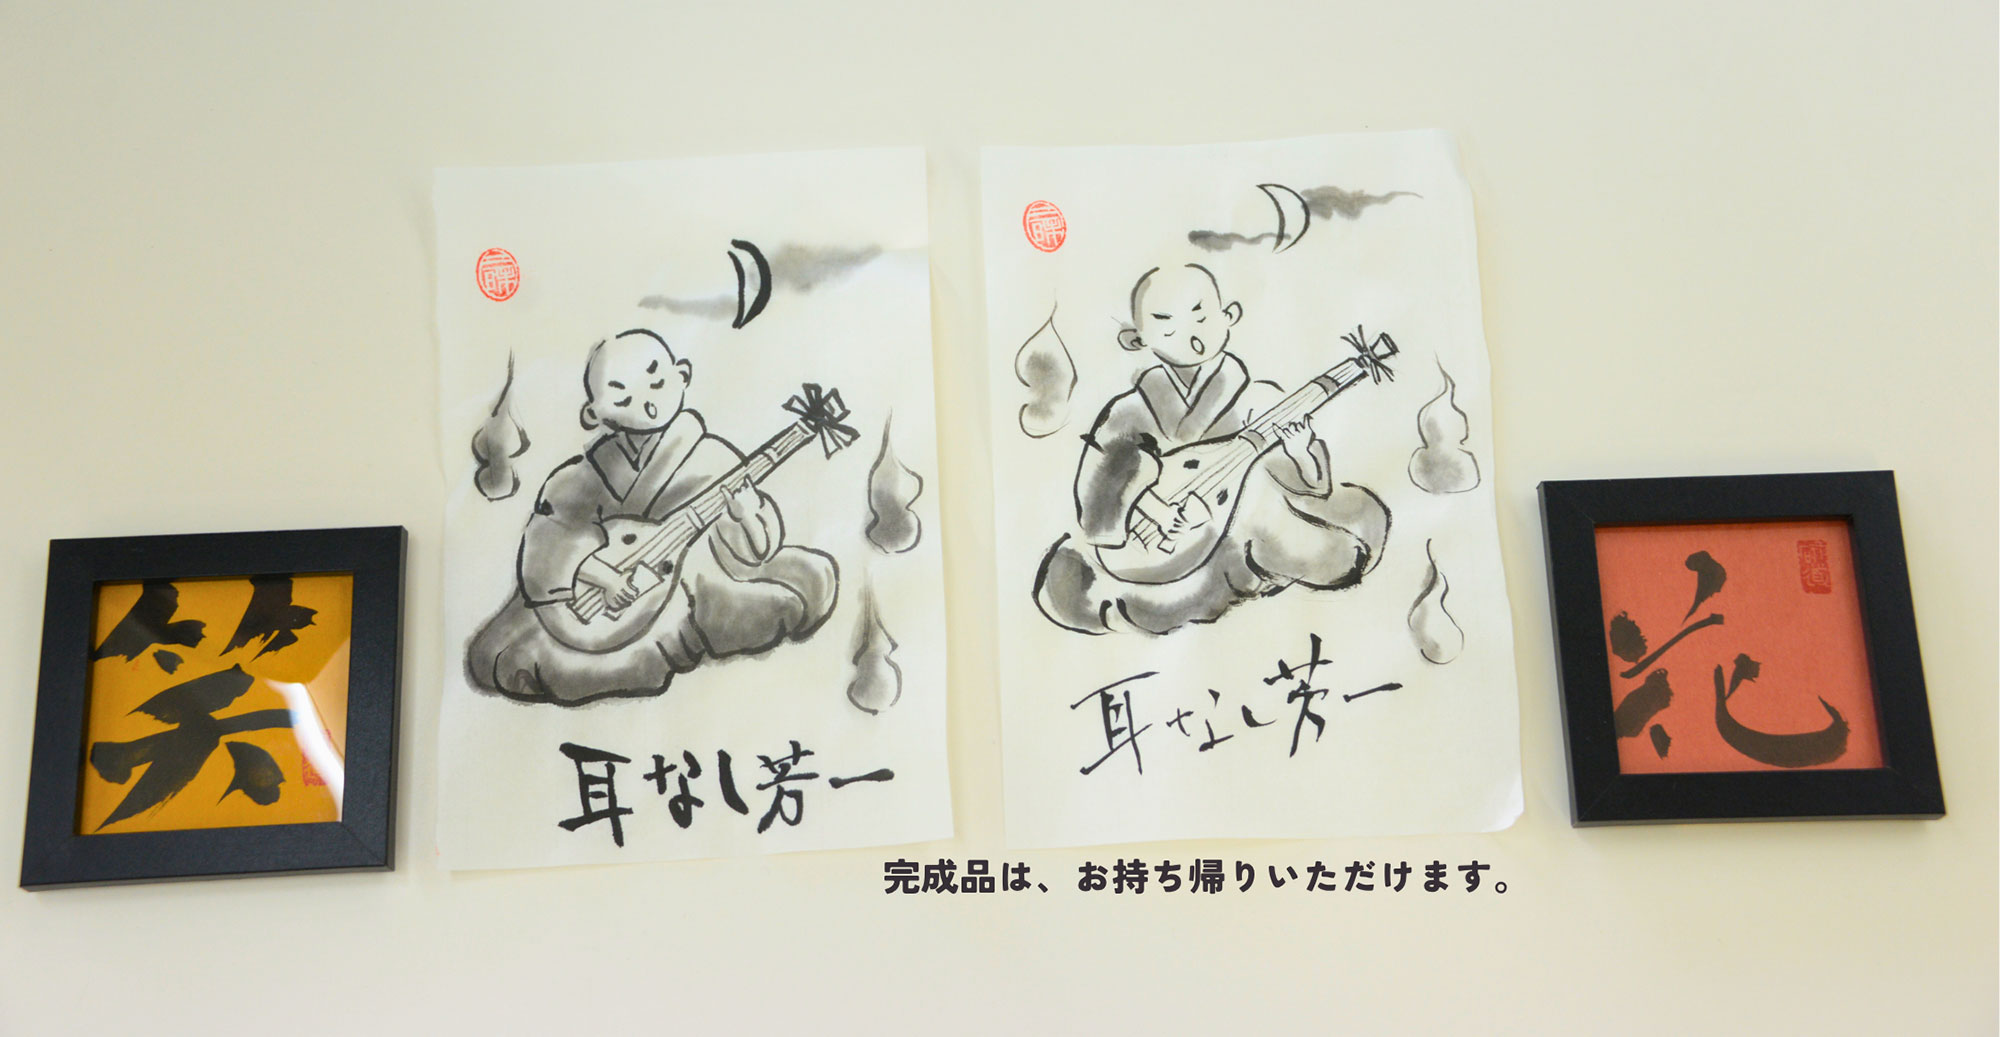 笑
耳なし芳一
耳なし芳一
花
完成品は、お持ち帰りいただけます。